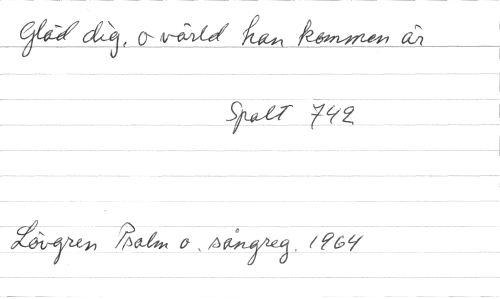 Gläd dig, o värld han kommen är
Spalt 742
Lövgren Psalm o. sångreg. 1964